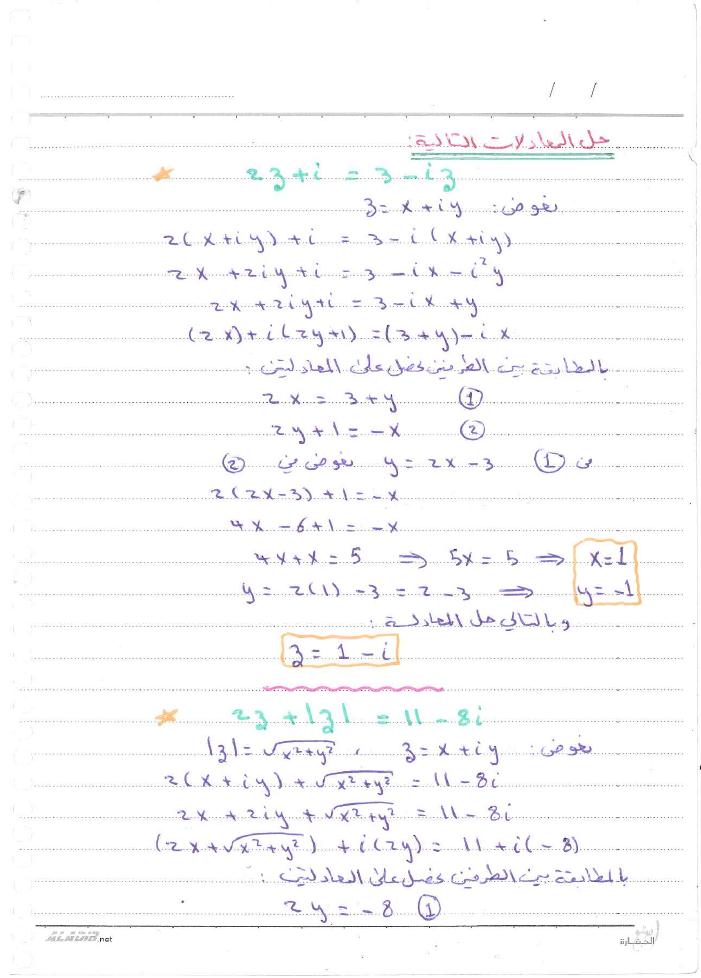 / /
حل المعادلات التالية:
2z + i = 3 - iz
نعوض: z = x + iy
2(x + iy) + i = 3 - i(x + iy)
2x + 2iy + i = 3 - ix - i²y
2x + 2iy + i = 3 - ix + y
(2x) + i(2y + 1) = (3 + y) - ix
بالمطابقة بين الطرفين نحصل على المعادلتين:
2x = 3 + y ①
2y + 1 = -x ②
من ① y = 2x - 3 نعوض في ②
2(2x - 3) + 1 = -x
4x - 6 + 1 = -x
4x + x = 5 ⇒ 5x = 5 ⇒ x = 1
y = 2(1) - 3 = 2 - 3 ⇒ y = -1
وبالتالي حل المعادلة:
z = 1 - i
2z + |z| = 11 - 8i
نعوض: z = x + iy ، |z| = √(x² + y²)
2(x + iy) + √(x² + y²) = 11 - 8i
2x + 2iy + √(x² + y²) = 11 - 8i
(2x + √(x² + y²)) + i(2y) = 11 + i(-8)
بالمطابقة بين الطرفين نحصل على المعادلتين:
2y = -8 ①
ALMANB.net
الحضارة